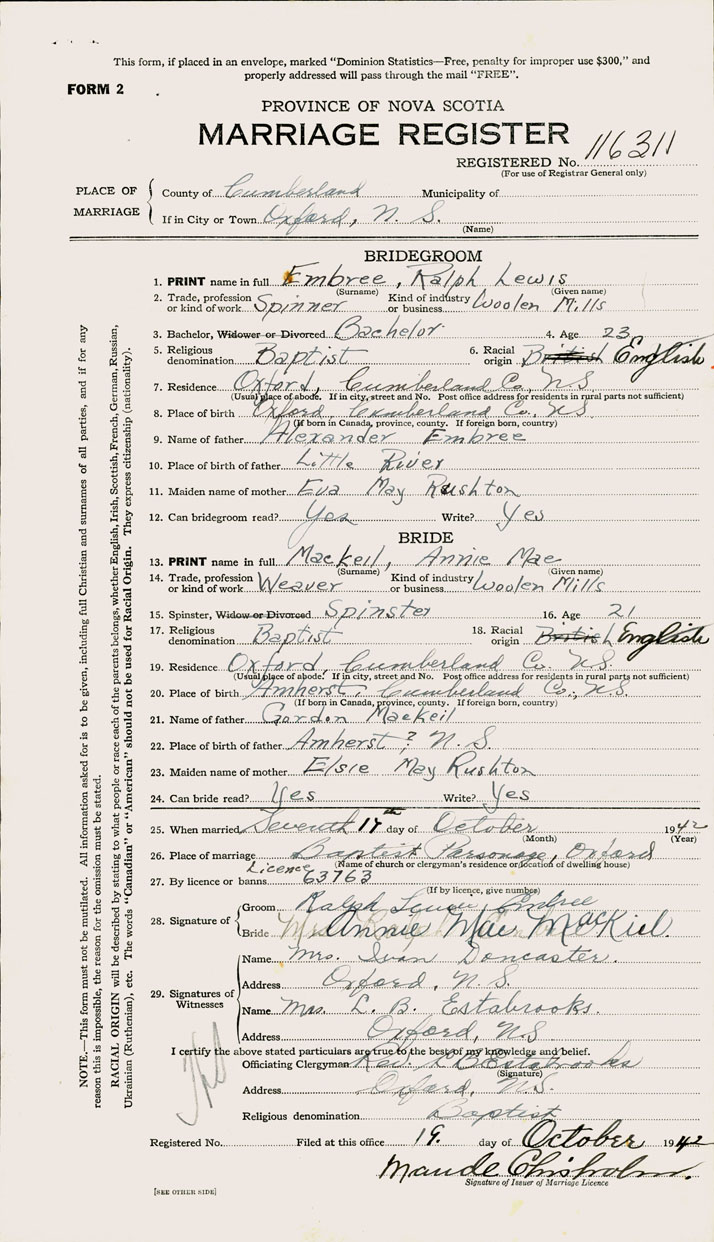 This form, if placed in an envelope, marked "Dominion Statistics—Free, penalty for improper use $300," and
properly addressed will pass through the mail "FREE".
FORM 2
PROVINCE OF NOVA SCOTIA
MARRIAGE REGISTER
REGISTERED No. 116311
(For use of Registrar General only)
PLACE OF MARRIAGE
County of Cumberland Municipality of
If in City or Town Oxford, N. S.
(Name)
BRIDEGROOM
1. PRINT name in full Embree, Ralph Lewis
(Surname) (Given name)
2. Trade, profession or kind of work Spinner Kind of industry or business Woolen Mills
3. Bachelor, Widower or Divorced Bachelor 4. Age 23
5. Religious denomination Baptist 6. Racial origin British English
7. Residence Oxford, Cumberland Co., N.S.
(Usual place of abode. If in city, street and No. Post office address for residents in rural parts not sufficient)
8. Place of birth Oxford, Cumberland Co., N.S.
(If born in Canada, province, county. If foreign born, country)
9. Name of father Alexander Embree
10. Place of birth of father Little River
11. Maiden name of mother Eva May Rushton
12. Can bridegroom read? Yes Write? Yes
BRIDE
13. PRINT name in full Mackeil, Annie Mae
(Surname) (Given name)
14. Trade, profession or kind of work Weaver Kind of industry or business Woolen Mills
15. Spinster, Widow or Divorced Spinster 16. Age 21
17. Religious denomination Baptist 18. Racial origin British English
19. Residence Oxford, Cumberland Co. N.S.
(Usual place of abode. If in city, street and No. Post office address for residents in rural parts not sufficient)
20. Place of birth Amherst, Cumberland Co., N.S.
(If born in Canada, province, county. If foreign born, country)
21. Name of father Gordon Mackeil
22. Place of birth of father Amherst? N.S.
23. Maiden name of mother Elsie May Rushton
24. Can bride read? Yes Write? Yes
25. When married Seventh 17th day of October 1942
(Month) (Year)
26. Place of marriage Baptist Parsonage, Oxford
(Name of church or clergyman's residence or location of dwelling house)
27. By licence or banns Licence 63763
(If by licence, give number)
28. Signature of
Groom Ralph Lewis Embree
Bride Annie Mae MacKiel.
29. Signatures of Witnesses
Name Mrs. Ivan Doncaster.
Address Oxford, N.S.
Name Mrs. L. B. Estabrooks.
Address Oxford, N.S
I certify the above stated particulars are true to the best of my knowledge and belief.
Officiating Clergyman Rev. L B Estabrooks
(Signature)
Address Oxford, N.S.
Religious denomination Baptist
Registered No. Filed at this office 19. day of October 1942
Maude Chisholm.
Signature of Issuer of Marriage Licence
[SEE OTHER SIDE]
NOTE.—This form must not be mutilated. All information asked for is to be given, including full Christian and surnames of all parties, and if for any
reason this is impossible, the reason for the omission must be stated.
RACIAL ORIGIN will be described by stating to what people or race each of the parents belongs, whether English, Irish, Scottish, French, German, Russian,
Ukrainian (Ruthenian), etc. The words "Canadian" or "American" should not be used for Racial Origin. They express citizenship (nationality).